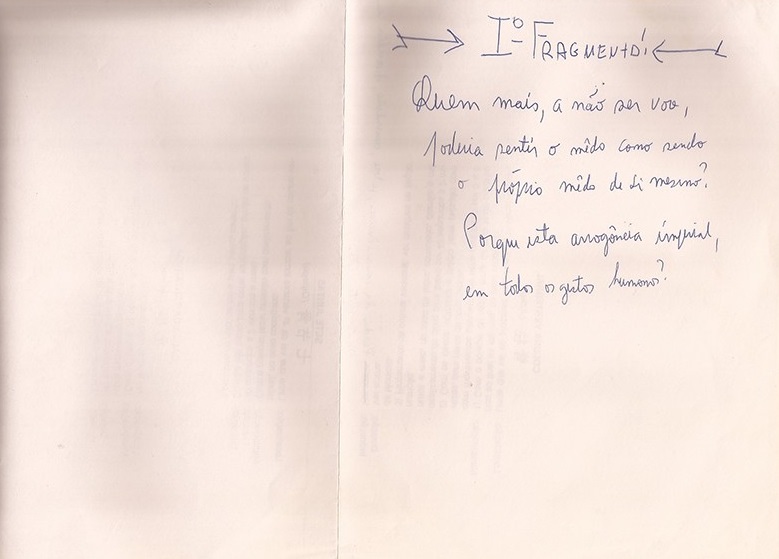 Iº FRAGMENTO!
Quem mais, a não ser voce,
poderia sentir o mêdo como sendo
o própio mêdo de si mesmo?
Porque esta arrogância imperial,
em todos os gestos humanos?